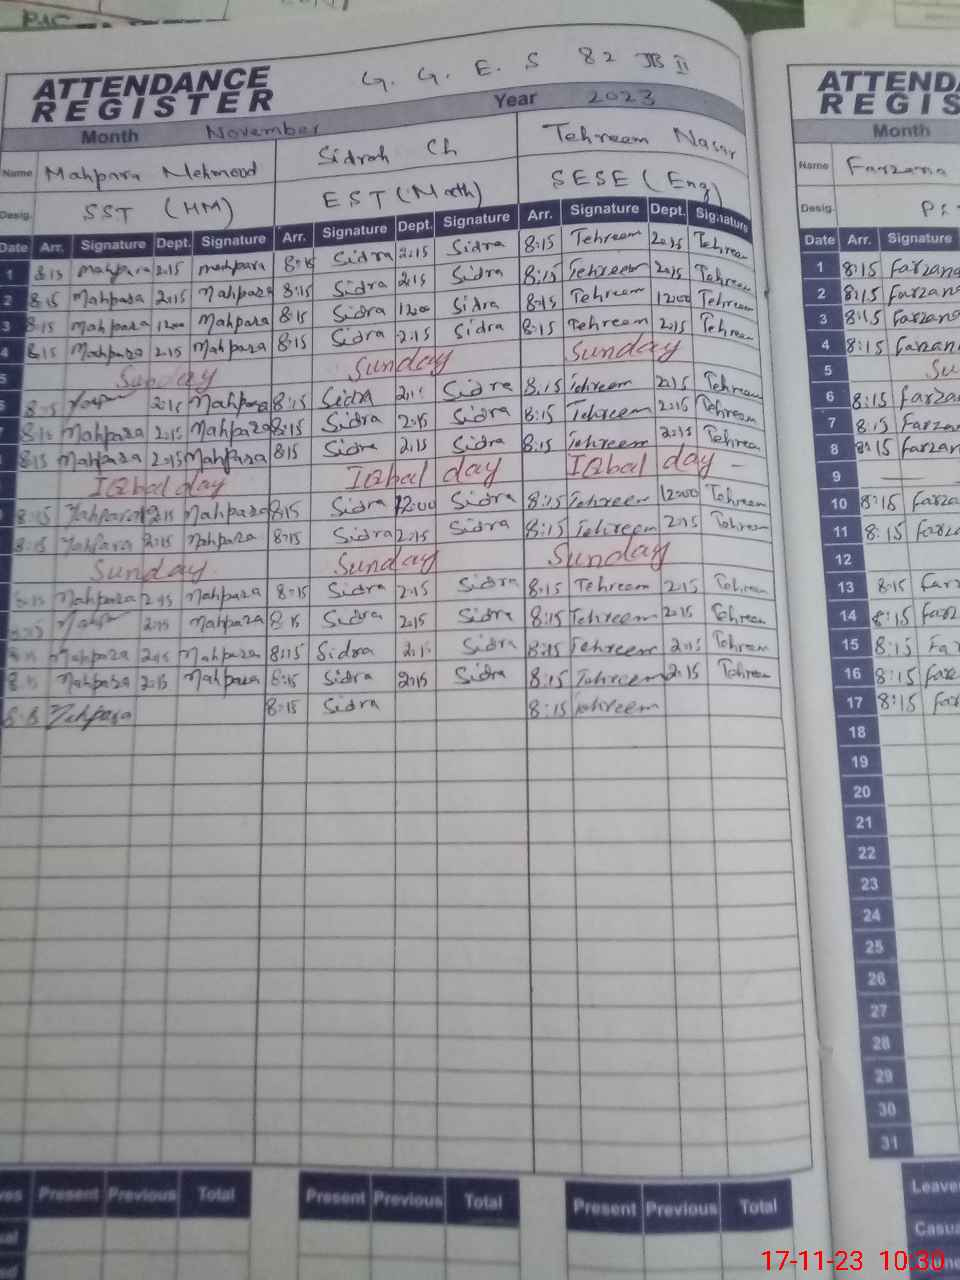 PAC
ATTENDANCE REGISTER G. G. E. S 82 JB II
Month November Year 2023
Name Mahpara Mehmood Sidrah Ch Tehreem Nasar
Desig. SST (HM) EST (Math) SESE (Eng)
Date Arr. Signature Dept. Signature Arr. Signature Dept. Signature Arr. Signature Dept. Signature
1 8:15 Mahpara 2:15 Mahpara 8:15 Sidra 2:15 Sidra 8:15 Tehreem 2:15 Tehreem
2 8:15 Mahpara 2:15 Mahpara 8:15 Sidra 2:15 Sidra 8:15 Tehreem 2:15 Tehreem
3 8:15 Mahpara 1200 Mahpara 8:15 Sidra 1200 Sidra 8:15 Tehreem 1200 Tehreem
4 8:15 Mahpara 2:15 Mahpara 8:15 Sidra 2:15 Sidra 8:15 Tehreem 2:15 Tehreem
5 Sunday Sunday Sunday
8:15 2:15 Mahpara 8:15 Sidra Sidra 8:15 Tehreem 2:15 Tehreem
8:15 Mahpara 2:15 Mahpara 8:15 Sidra 2:15 Sidra 8:15 Tehreem 2:15 Tehreem
8:15 Mahpara 2:15 Mahpara 8:15 Sidra 2:15 Sidra 8:15 Tehreem 2:15 Tehreem
IQbal day IQbal day IQbal day
8:15 Mahpara 2:15 Mahpara 8:15 Sidra 12:00 Sidra 8:15 Tehreem 12:00 Tehreem
8:15 Mahpara 2:15 Mahpara 8:15 Sidra 2:15 Sidra 8:15 Tehreem 2:15 Tehreem
Sunday Sunday Sunday
8:15 Mahpara 2:15 Mahpara 8:15 Sidra 2:15 Sidra 8:15 Tehreem 2:15 Tehreem
2:15 Mahpara 8:15 Sidra 2:15 Sidra 8:15 Tehreem 2:15 Tehreem
8:15 Mahpara 2:15 Mahpara 8:15 Sidra 2:15 Sidra 8:15 Tehreem 2:15 Tehreem
8:15 Mahpara 2:15 Mahpara 8:15 Sidra 2:15 Sidra 8:15 Tehreem 2:15 Tehreem
8:15 Mahpara 8:15 Sidra 8:15 Tehreem
Present Previous Total Present Previous Total Present Previous Total
ATTENDA
REGIS
Month
Name Farzana
Desig.
Date Arr. Signature
1 8:15 Farzana
2 8:15 Farzan
3 8:15 Farzan
4 8:15 Farzan
5 Su
6 8:15 Farza
7 8:15 Farza
8 8:15 Farzan
9
10 8:15 Farza
11 8:15 Farza
12
13 8:15 Farz
14 8:15 Farz
15 8:15 Far
16 8:15 Farz
17 8:15 Far
18
19
20
21
22
23
24
25
26
27
28
29
30
31
Leave
Casua
17-11-23 10:30